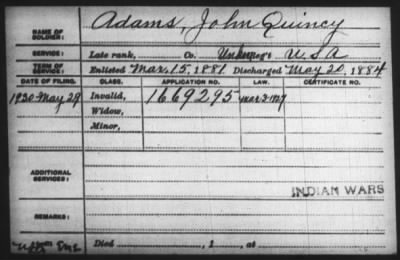 NAME OF SOLDIER: Adams, John Quincy
SERVICE: Late rank, Co. Reg't U S A
TERM OF SERVICE: Enlisted Mar. 15, 1881 Discharged May 20, 1884
DATE OF FILING. CLASS. APPLICATION NO. LAW. CERTIFICATE NO.
1930-May 29 Invalid, 1669295 Mar 3-1927
Widow,
Minor,
ADDITIONAL SERVICES:
INDIAN WARS
REMARKS:
Died , 1 , at